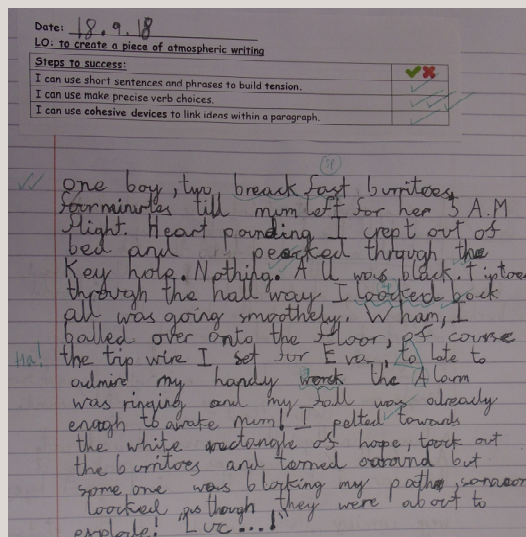 Date: 18.9.18
LO: to create a piece of atmospheric writing
Steps to success:
I can use short sentences and phrases to build tension.
I can make precise verb choices.
I can use cohesive devices to link ideas within a paragraph.
one boy, two, breack fast burritoes,
four minutes till mum left for her 5 A.M
flight. Heart pounding I crept out of
bed and peacked through the
Key hole. Nothing. All was black. Tiptoe
through the hall way I loocked back
all was going smoothely. Wham, I
balled over onto the floor, of course
Ha! the trip wire I set for Eva, to late to
admire my handy work the Alarm
was ringing and my fall was already
enogh to awake mum! I pelted towards
the white rectangle of hope, took out
the burritoes and terned around but
some one was blocking my pathe,
loocked as though they were about to
explode! "Luc...!"